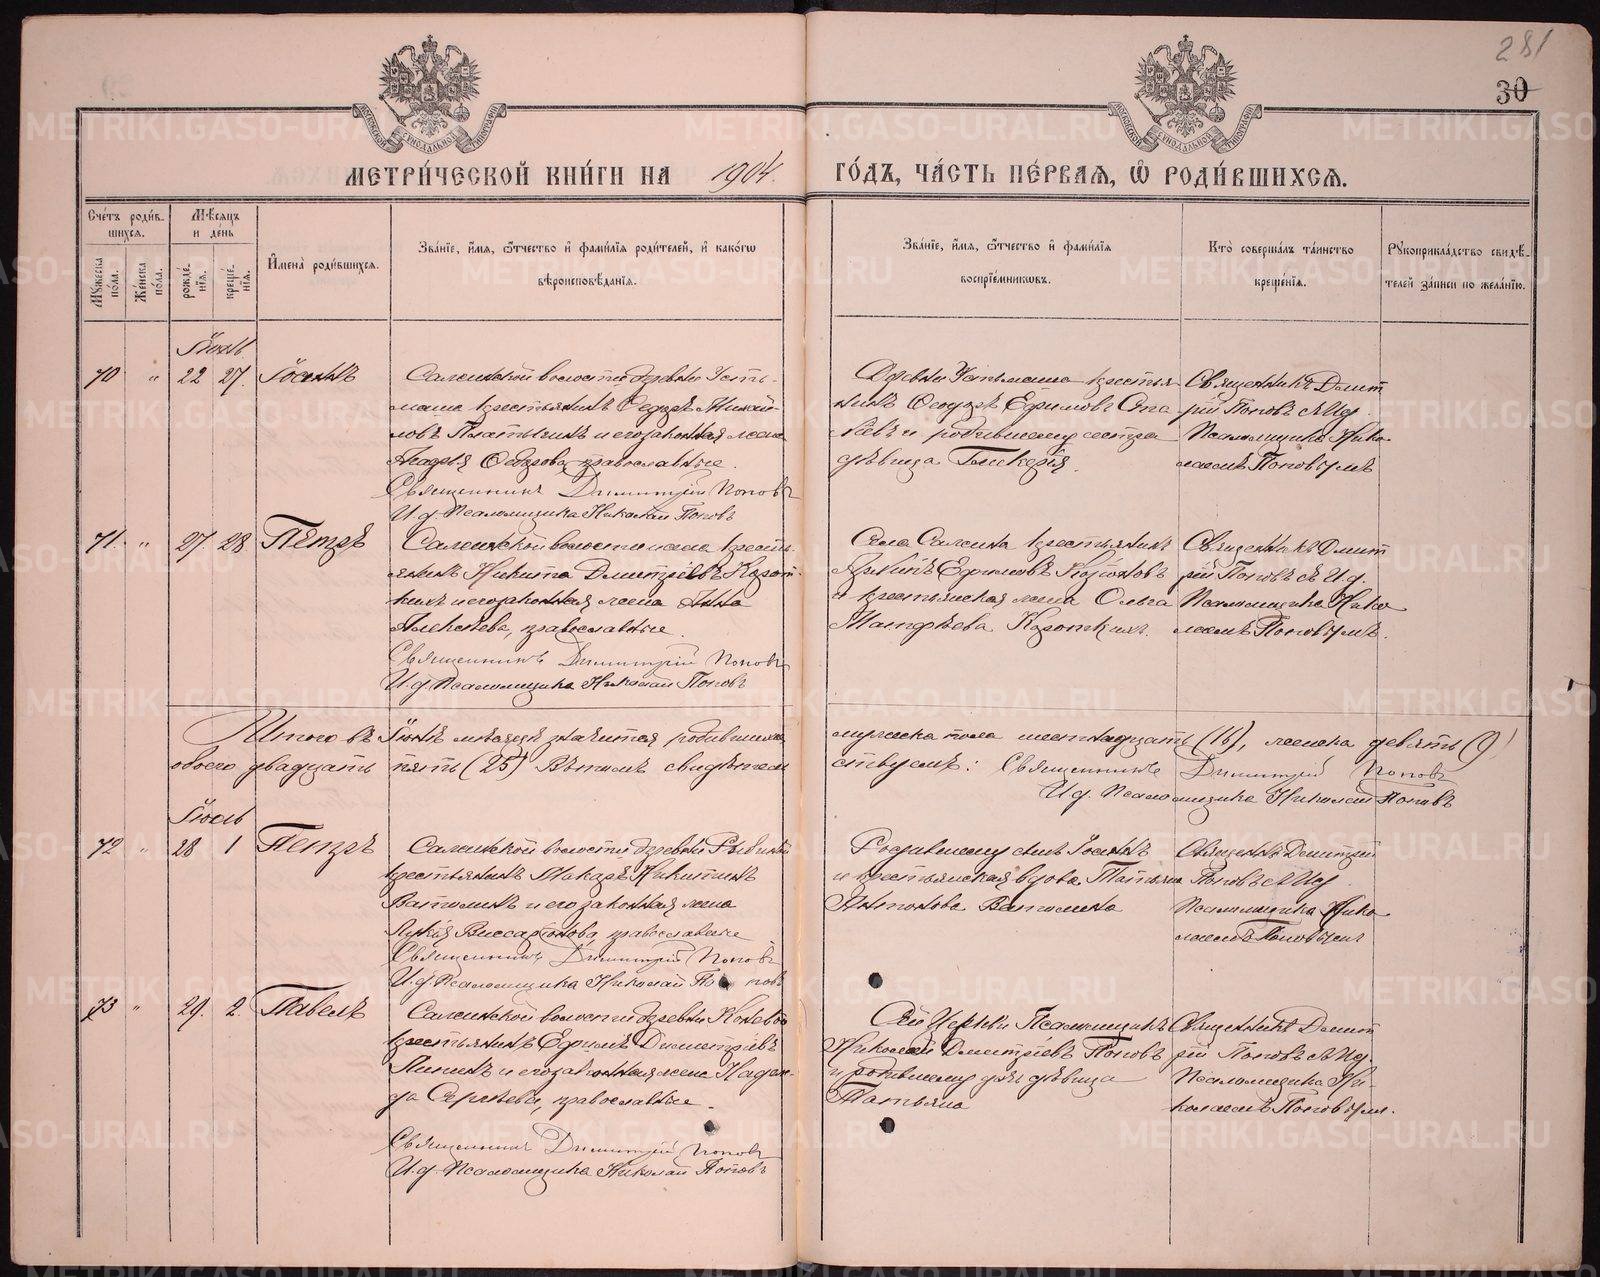 281
30
МЕТРИ́ЧЕСКОЙ КНИ́ГИ НА 1904 ГО́ДЪ, ЧА́СТЬ ПЕ́РВАЯ, Ѡ РОДИ́ВШИХСЯ.
Сче́тъ роди́в-
шихся.
Му́жеска по́ла.
Же́нска по́ла.
Мѣ́сяцъ и де́нь
рожде́-
нїя.
креще́-
нїя.
И҆мена̀ роди́вшихся.
Зва́нїе, и҆́мя, ѻ҆́тчество и҆ фами́лїя роди́телей, и҆ како́гѡ
вѣроисповѣ́данїя.
Зва́нїе, и҆́мя, ѻ҆́тчество и҆ фами́лїя
воспрїе́мниковъ.
Кто̀ соверша́лъ та́инство
креще́нїя.
Рукоприкла́дство свидѣ́-
телей за́писи по жела́нїю.
Іюнь
70 " 22 27. Іоаннъ
Салсинской волости деревни Усть-
маша крестьянинъ Ѳедоръ Михай-
ловъ и его законная жена
Ѳедорова, православные.
Священникъ Димитрій Поповъ
И. д. Псаломщика Николай Поповъ
Деревни Устьмаша крестья
нинъ Ѳеодоръ Ефимовъ
и родившему сестра
дѣвица Гликерія.
Священникъ Димит
рій Поповъ съ И.д.
Псаломщика Нико
лаемъ Поповымъ
71. " 27. 28 Петръ
Салсинской волости села кресть
янинъ Никита Дмитріевъ Корот-
кихъ и его законная жена Анна
Алексѣева, православные.
Священникъ Димитрій Поповъ
И. д. Псаломщика Николай Поповъ
Села крестьянинъ
Ефимовъ
и крестьянская жена Ольга
Матфѣева Короткихъ.
Священникъ Димит
рій Поповъ съ И.д.
Псаломщика Нико
лаемъ Поповымъ.
Итого въ Іюнѣ мѣсяцѣ значится родившихся мужеска пола шестнадцать (16), женска девять (9)
обоего двадцать пять (25) Въ томъ свидѣтель ствуемъ: Священникъ Димитрій Поповъ
И.д. Псаломщика Николай Поповъ
Іюль
72 " 28 1 Петръ
Салсинской волости деревни
крестьянинъ Макаръ Никитинъ
Ватолинъ и его законная жена
Лукія Виссаріонова, православные
Священникъ Димитрій Поповъ
И. д. Псаломщика Николай Поповъ
Родившему сынъ Іоаннъ
и крестьянская вдова Татьяна
Антонова Ватолина
Священникъ Димитрій
Поповъ съ И.д.
Псаломщика Нико
лаемъ Поповымъ
73 " 29. 2. Павелъ
Салсинской волости деревни
крестьянинъ Ефимъ Димитріевъ
и его законная жена Надеж-
да Сергѣева, православные.
Священникъ Димитрій Поповъ
И. д. Псаломщика Николай Поповъ
Сей Церкви Псаломщикъ
Николай Дмитріевъ Поповъ
и родившему дочь дѣвица
Татьяна
Священникъ Димит
рій Поповъ съ И.д.
Псаломщика Ни-
колаемъ Поповымъ.
METRIKI.GASO-URAL.RU